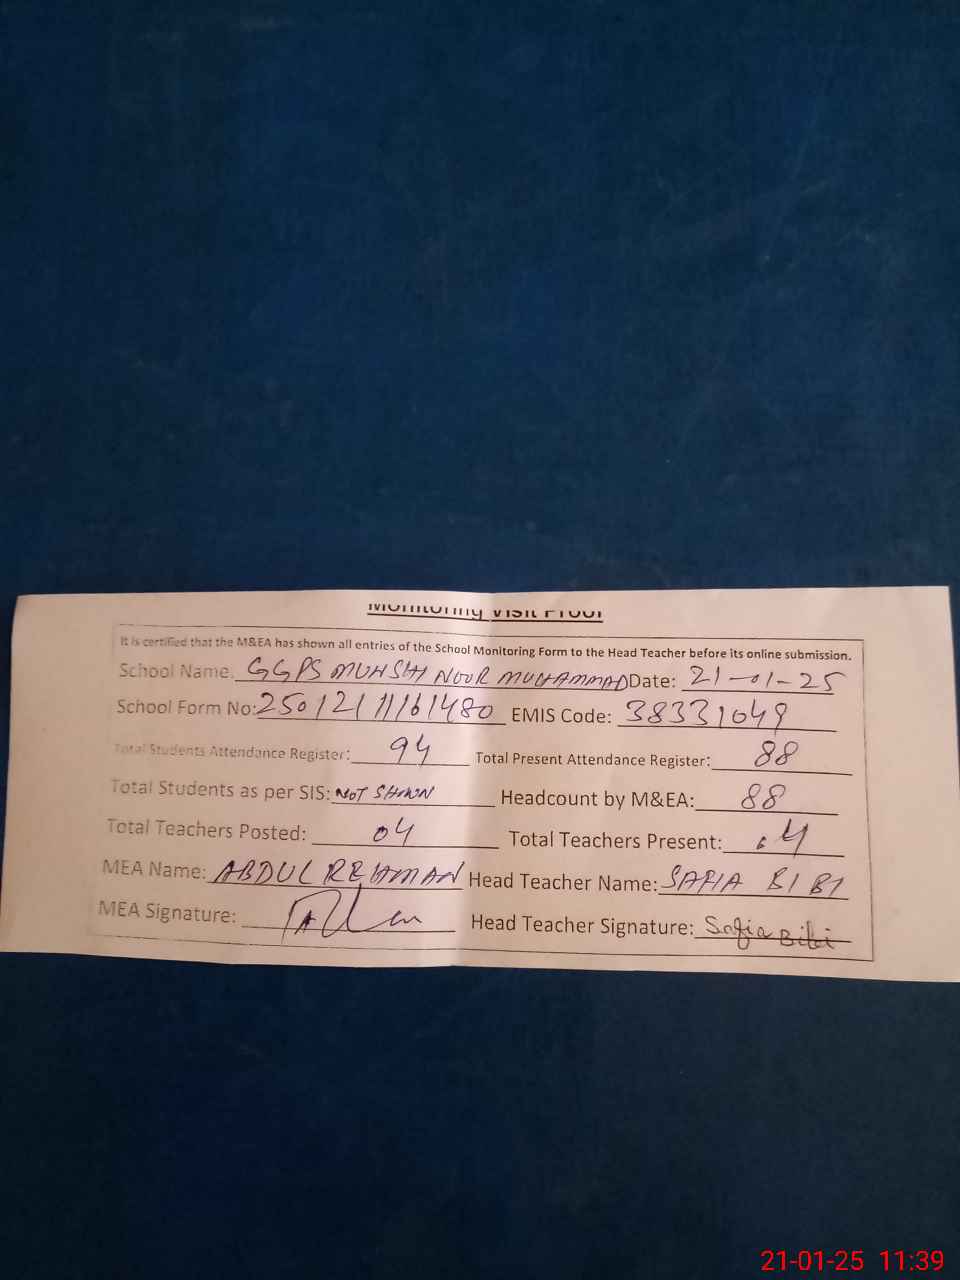 Monitoring Visit Proof
It is certified that the M&EA has shown all entries of the School Monitoring Form to the Head Teacher before its online submission.
School Name: GGPS MUHSIH NOOR MUHAMMAD Date: 21-01-25
School Form No: 25012111161480 EMIS Code: 38331049
Total Students Attendance Register: 94 Total Present Attendance Register: 88
Total Students as per SIS: NOT SHOWN Headcount by M&EA: 88
Total Teachers Posted: 04 Total Teachers Present: 04
MEA Name: ABDUL REHMAN Head Teacher Name: SAFIA BIBI
MEA Signature: Head Teacher Signature: Safia Bibi
21-01-25 11:39